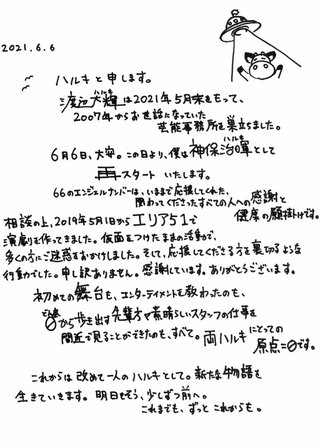 2021.6.6
ハルキと申します。
渡辺大輝は2021年5月末をもって、
2007年からお世話になっていた
芸能事務所を巣立ちました。
6月6日、大安。この日より、僕は神保治暉として
ハルキ
再スタートいたします。
66のエンジェルナンバーは、いままで応援してくれた、
関わってくださったすべての人への感謝と
健康の願掛けです。
相談の上、2019年5月1日からエリア51で
演劇を作ってきました。仮面をつけたままの活動が、
多くの方にご迷惑をおかけしました。そして、応援してくださる方を裏切るような
行動でした。申し訳ありません。感謝しています。ありがとうございます。
初めての舞台も、エンターテイメントを教わったのも、
0から歩き出す先輩方や素晴らしいスタッフの仕事を
間近で見ることができたのも、すべて。両ハルキにとっての
原点=0です。
これからは改めて一人のハルキとして。新たな物語を
生きていきます。明日もそう、少しずつ前へ。
これまでも、ずっとこれからも。